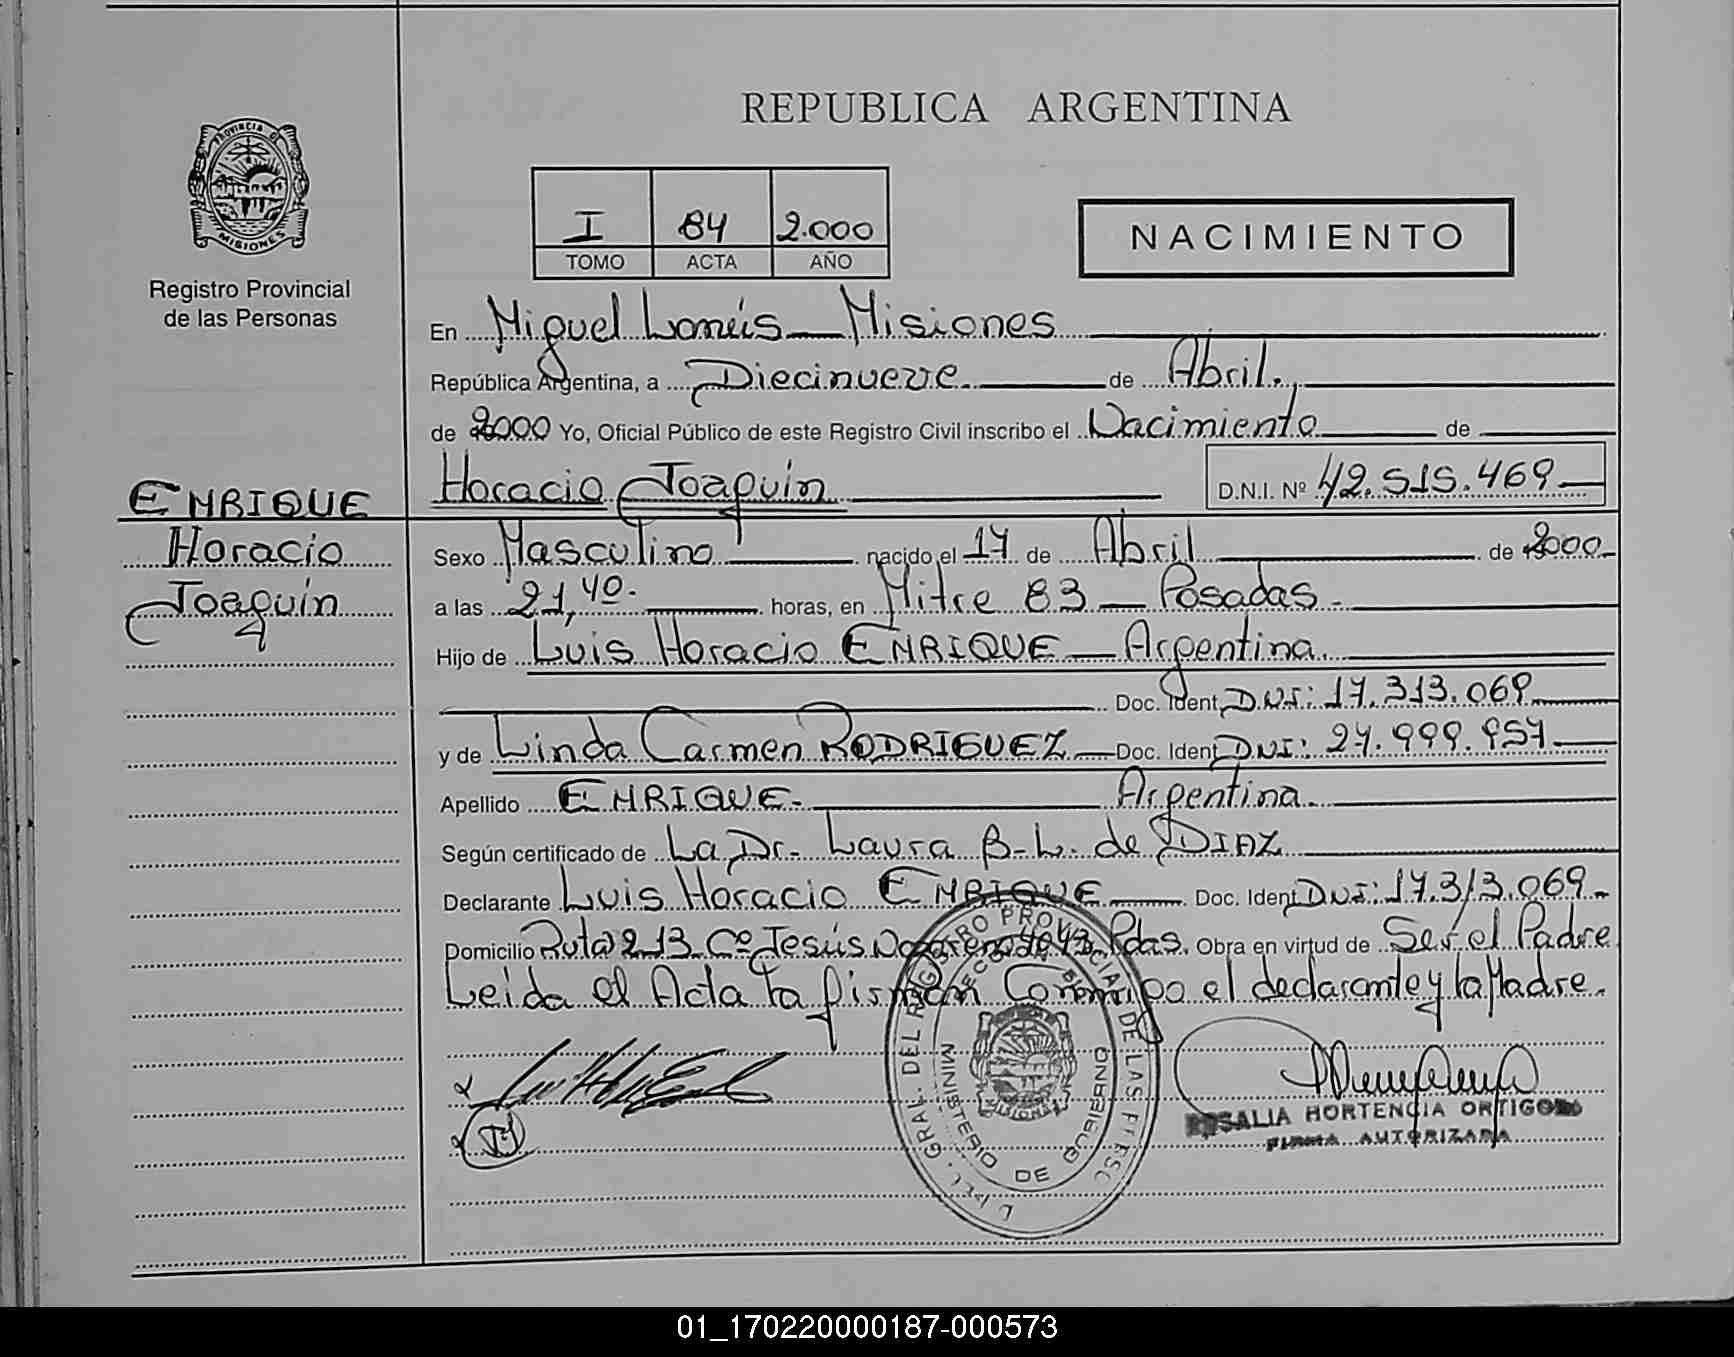 REPUBLICA ARGENTINA
PROVINCIA DE
MISIONES
Registro Provincial
de las Personas
I 84 2.000
TOMO ACTA AÑO
NACIMIENTO
En Miguel Lanús - Misiones
República Argentina, a Diecinueve de Abril.
de 2000 Yo, Oficial Público de este Registro Civil inscribo el Nacimiento de
Horacio Joaquín D.N.I. Nº 42.515.469
ENRIQUE
Horacio
Joaquín
Sexo Masculino nacido el 17 de Abril de 2000
a las 21,40. horas, en Mitre 83 - Posadas.
Hijo de Luis Horacio ENRIQUE - Argentina.
Doc. Ident. DNI: 17.313.069
y de Linda Carmen RODRIGUEZ Doc. Ident. DNI: 27.999.957
Apellido ENRIQUE. Argentina.
Según certificado de La Dr. Laura B. L. de DIAZ
Declarante Luis Horacio ENRIQUE Doc. Ident. DNI: 17.313.069
Domicilio Ruta 213 Cº Jesús Nazareno Pdas. Obra en virtud de Ser el Padre
Leida el Acta la firman Conmigo el declarante y la Madre.
ROSALIA HORTENCIA ORTIGOZA
FIRMA AUTORIZADA
GRAL. DEL REGISTRO PROVINCIAL DE LAS PERSO
MINISTERIO DE GOBIERNO
MISIONES
01_170220000187-000573